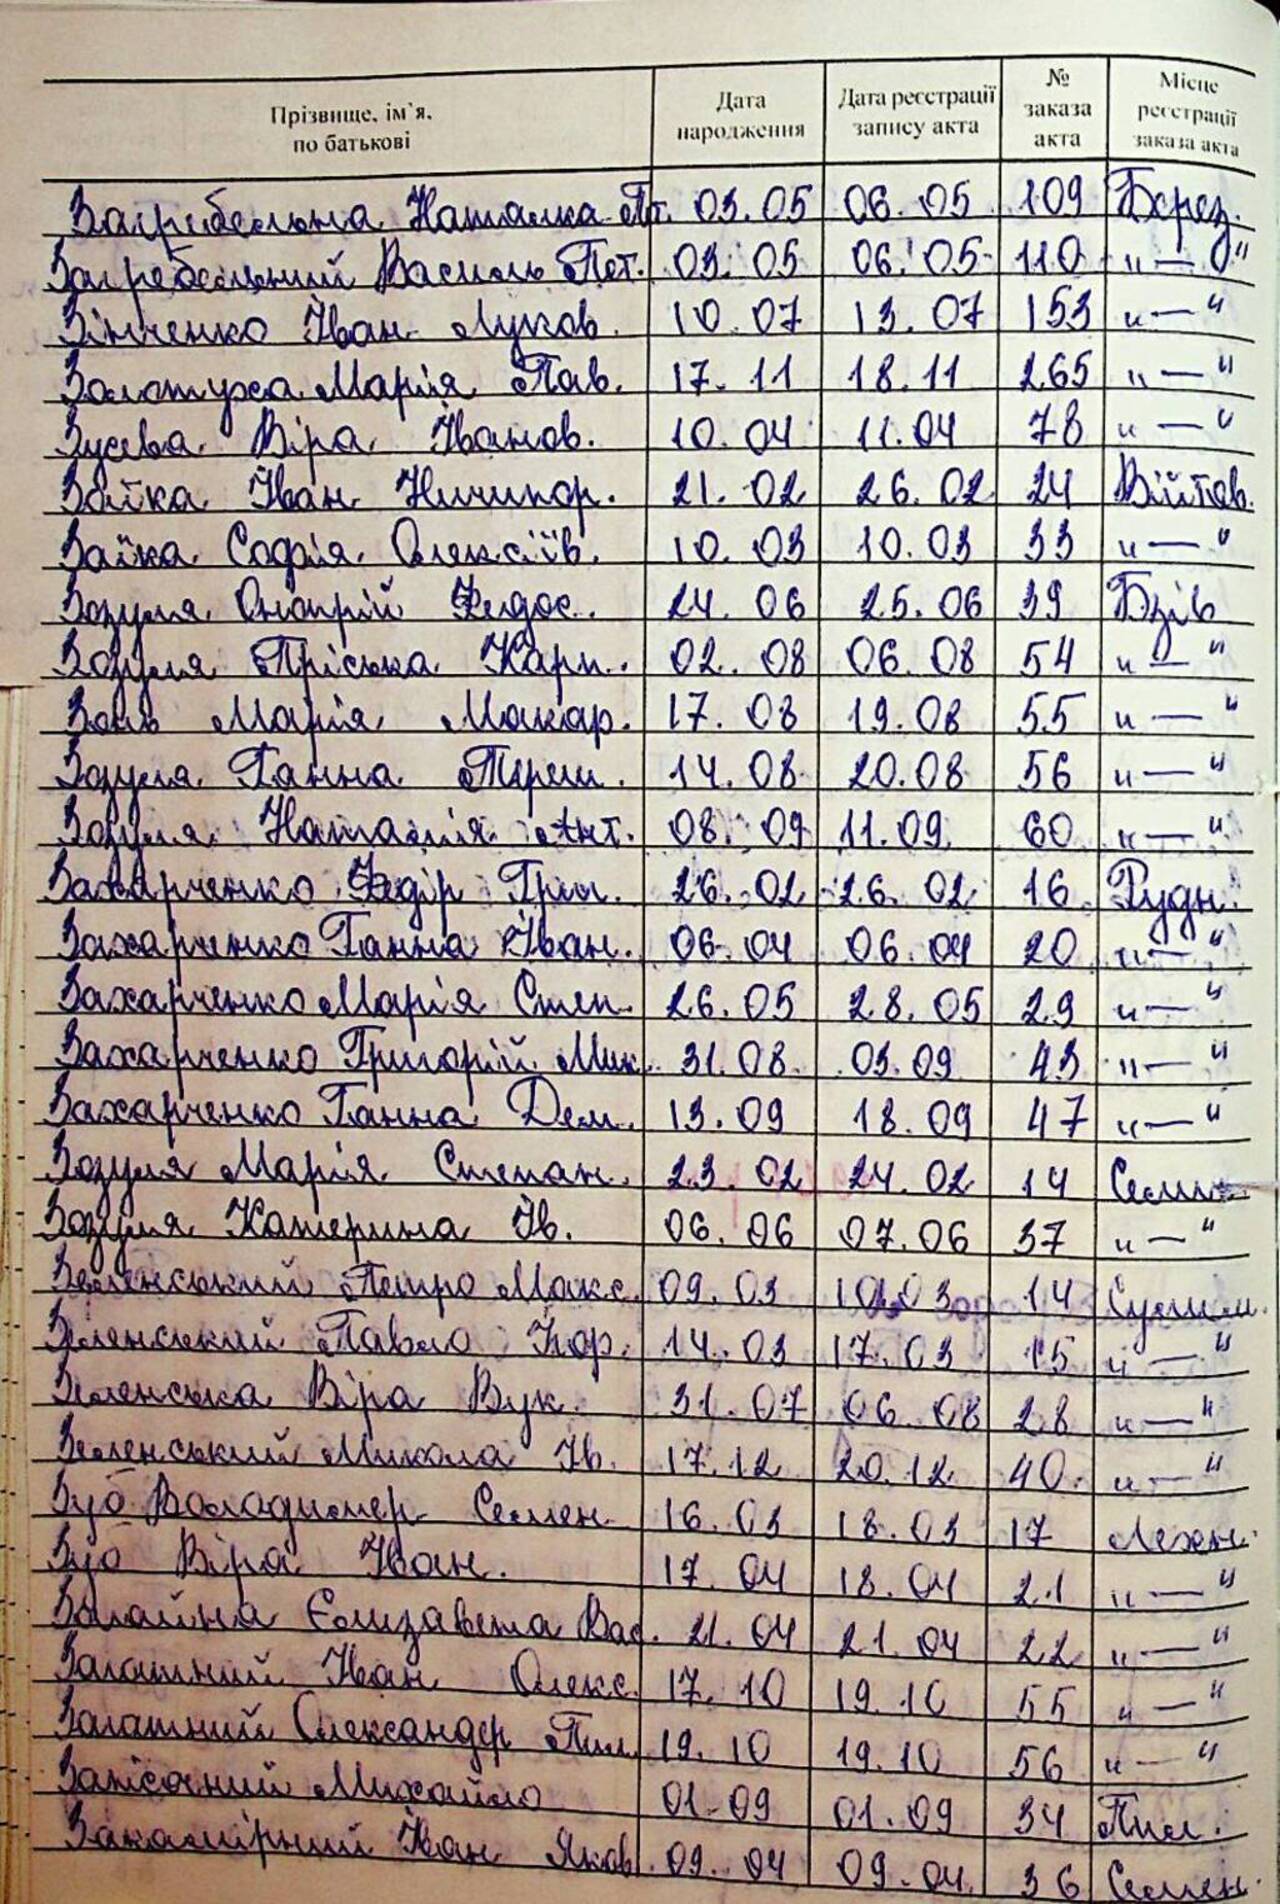 Прізвище, ім`я, по батькові Дата народження Дата реєстрації запису акта № заказа акта Місце реєстрації заказа акта
Загребельна Наталка Пт. 03.05 06.05 109 Берез.
Загребельний Василь Пет. 03.05 06.05 110 "—"
Зінченко Іван Луков. 10.07 13.07 153 "—"
Золотуха Марія Пав. 17.11 18.11 265 "—"
Зусєва Віра Іванов. 10.04 11.04 78 "—"
Заїка Іван Ничипор. 21.02 26.02 24 Війтов.
Заїка Софія Олексіїв. 10.03 10.03 33 "—"
Зозуля Онопрій Федос. 24.06 25.06 39 Бзів
Зозуля Пріська Карп. 02.08 06.08 54 "—"
Зоць Марія Макар. 17.08 19.08 55 "—"
Зозуля Ганна Тереш. 14.08 20.08 56 "—"
Зозуля Наталія Ант. 08.09 11.09 60 "—"
Захарченко Федір Григ. 26.02 26.02 16 Рудн.
Захарченко Ганна Іван. 06.04 06.04 20 "—"
Захарченко Марія Степ. 26.05 28.05 29 "—"
Захарченко Григорій Мик. 31.08 03.09 43 "—"
Захарченко Ганна Дем. 13.09 18.09 47 "—"
Зозуля Марія Степан. 23.02 24.02 14
Зозуля Катерина Ів. 06.06 07.06 37 "—"
Зеленський Петро Макс. 09.03 10.03 14 Сулим.
Зеленський Павло Кор. 14.03 17.03 15 "—"
Зеленська Віра Вук. 31.07 06.08 28 "—"
Зеленський Микола Ів. 17.12 20.12 40 "—"
Зуб Володимер Семен 16.03 18.03 17 Лехн.
Зуб Віра Іван. 17.04 18.04 21 "—"
Єлизавета Вас. 21.04 21.04 22 "—"
Іван Олекс. 17.10 19.10 55 "—"
Олександр Пил. 19.10 19.10 56 "—"
Михайло 01.09 01.09 34 Пил.
Іван Яков. 09.04 09.04 36 Семен.